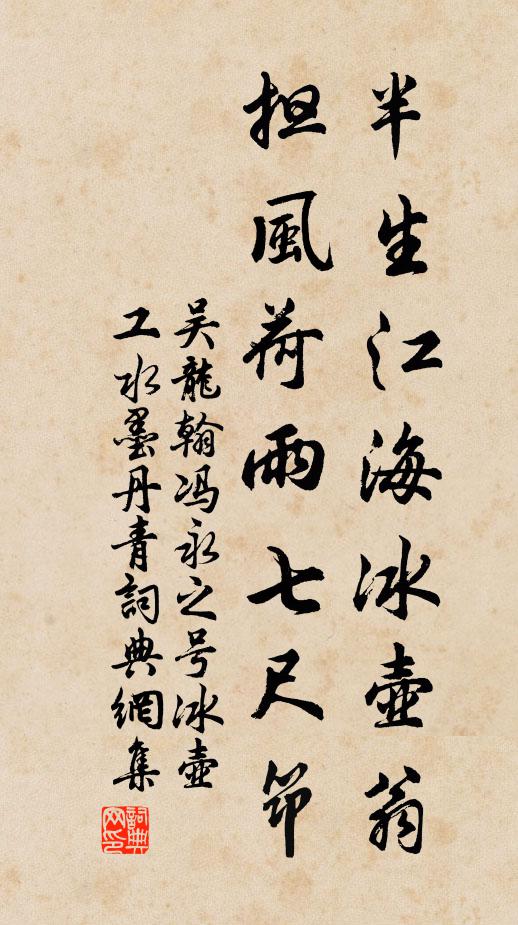 半生江海冰壺翁
担風荷雨七尺筇
吴龍翰冯永之号冰壺
工水墨丹青詞典網集
詞典网印